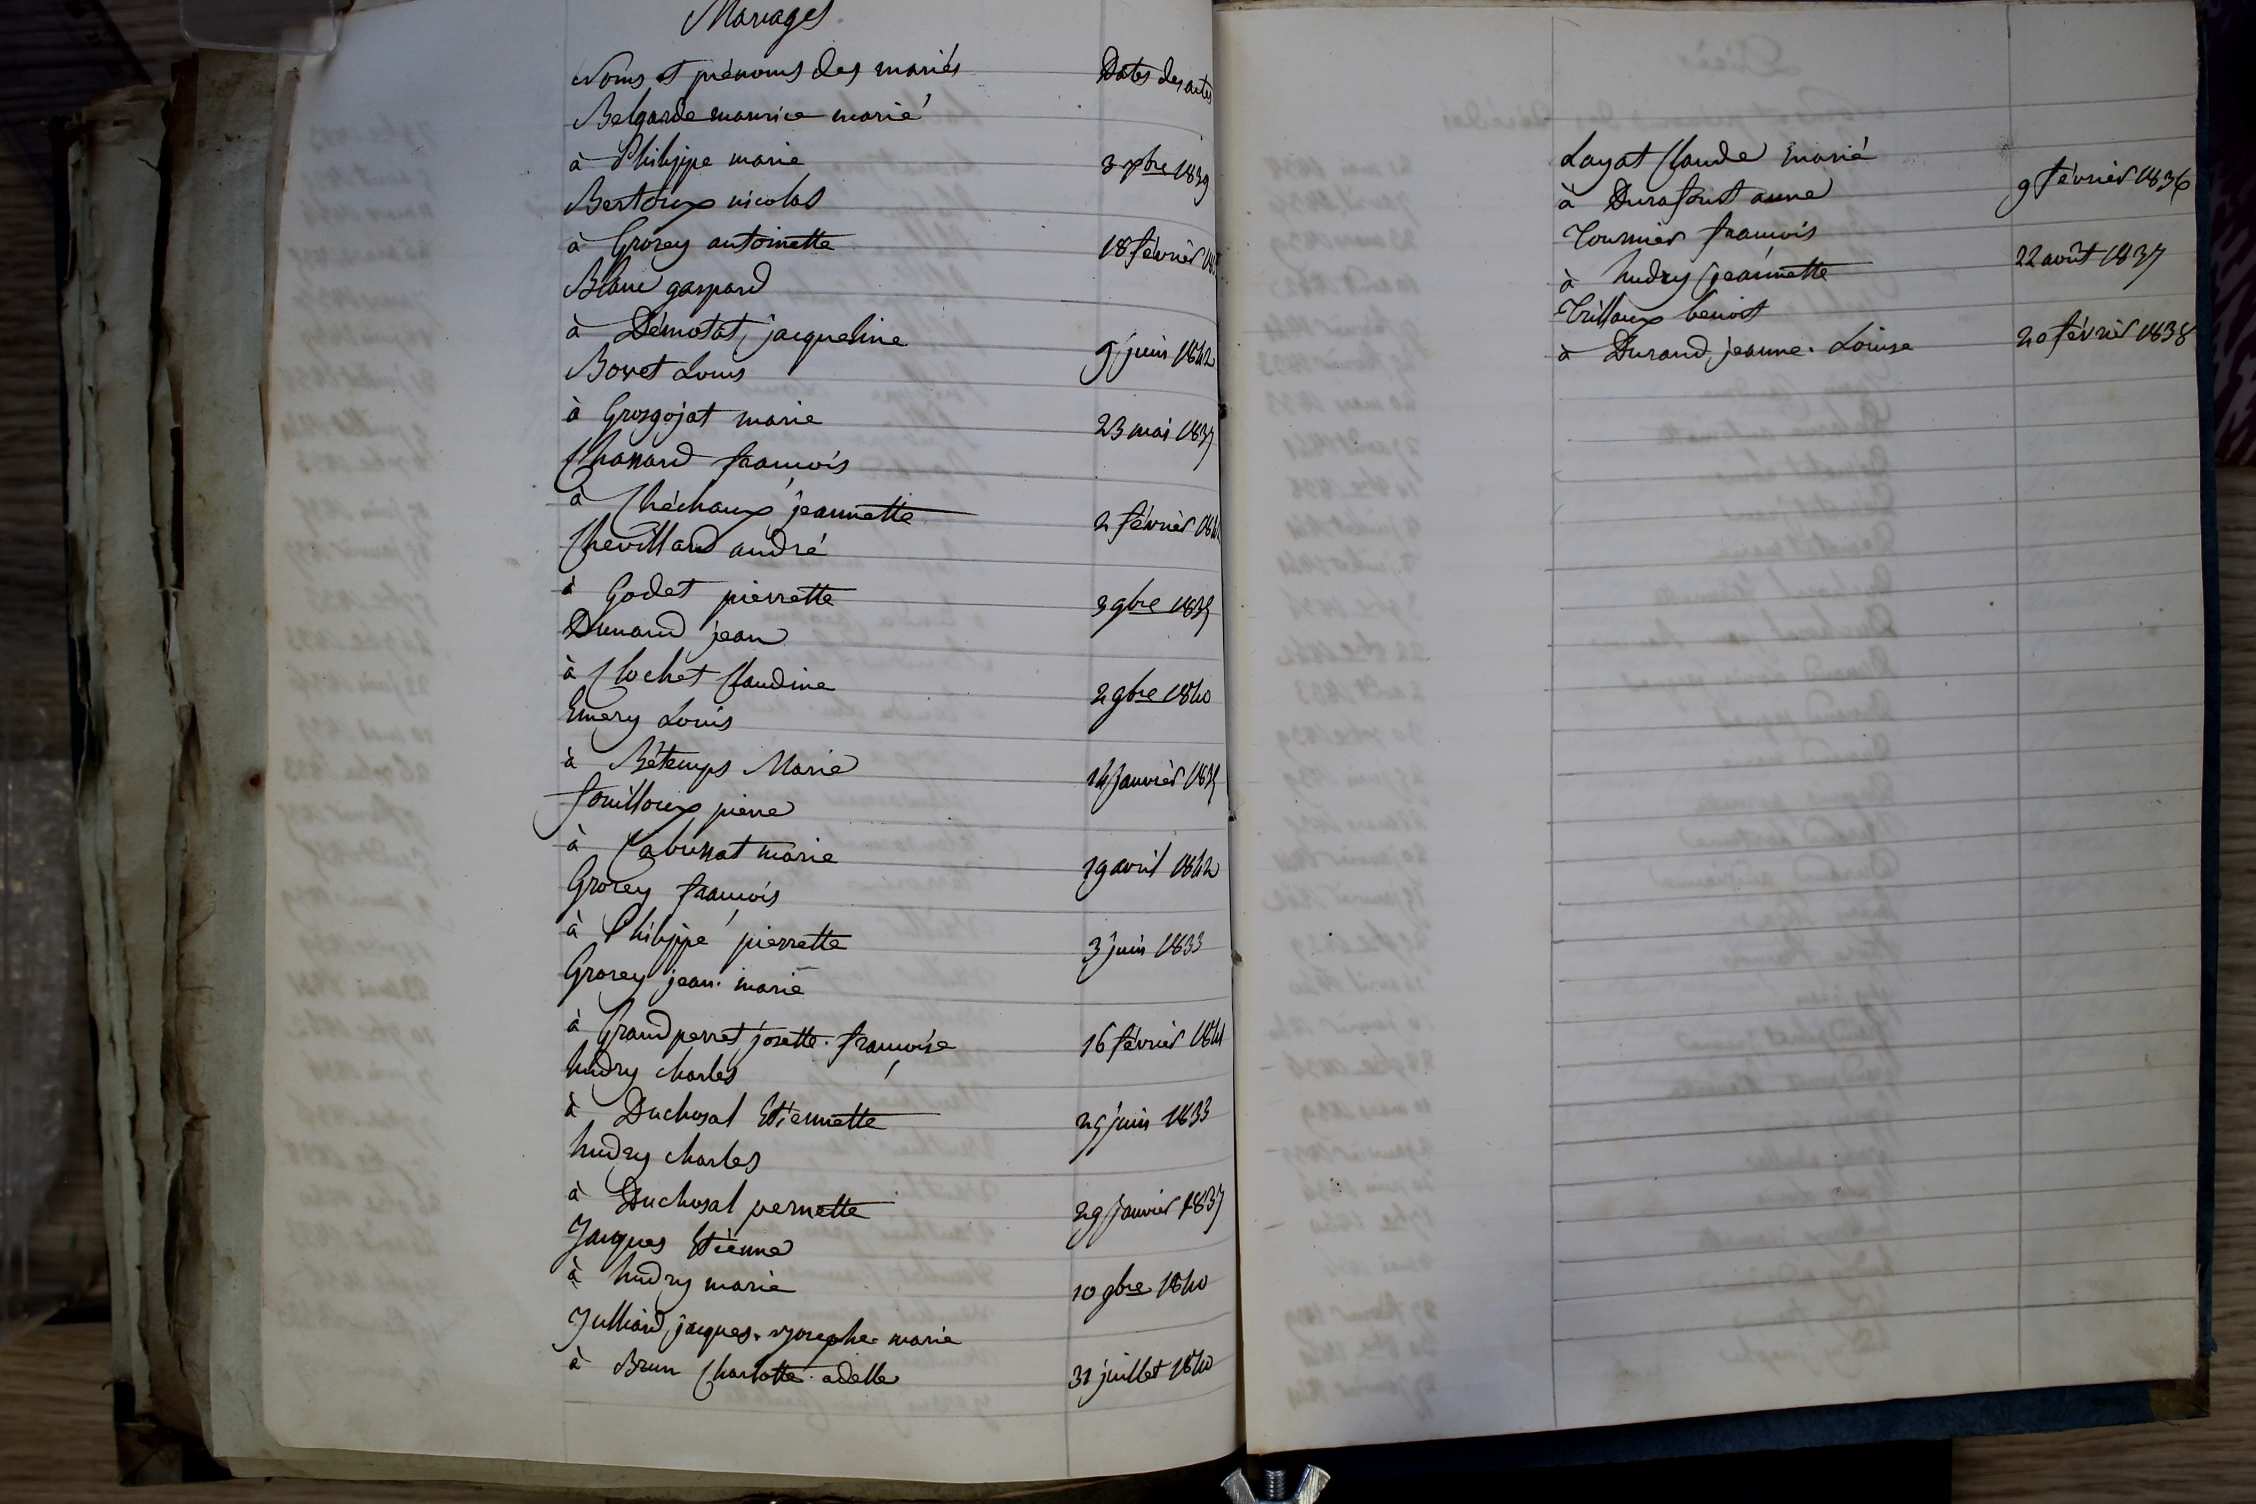 Mariages
Noms et prénoms des mariés Dates des actes
Belgarde maurice marié
à Philippe marie 3 7bre 1839
Bertoux nicolas
à Grorey antoinette 18 février
Blanc gaspard
à Démotat, jacqueline 9 juin 1842
Bovet Louis
à Grosgojat marie 23 mai 1837
Chanard françois
à Chéchoux jeannette 2 février
Chevilland andré
à Godet pierrette 3 9bre 1835
Dunand jean
à Clochet Claudine 2 9bre 1840
Emery Louis
à Bétemps Marie 14 janvier 1835
fouilloux pierre
à Cabussat marie 19 avril 1842
Grorey françois
à Philippe pierrette 3 juin 1833
Grorey jean. marie
à Grandperret josette. françoise 16 février 1841
hudry charles
à Duchosal Etiennette 25 juin 1833
hudry charles
à Duchosal pernette 29 janvier 1837
Jacques Etienne
à hudry marie 10 9bre 1840
Julliard, jacques. josephe. marie
à Brun Charlotte. adelle 31 juillet 1840
Layat Claude marié
à Durafout anne 9 février 1836
Tournier françois
à hudry jeannette 22 août 1837
Trillaux benoit
à Durand, jeanne. Louise 20 février 1838